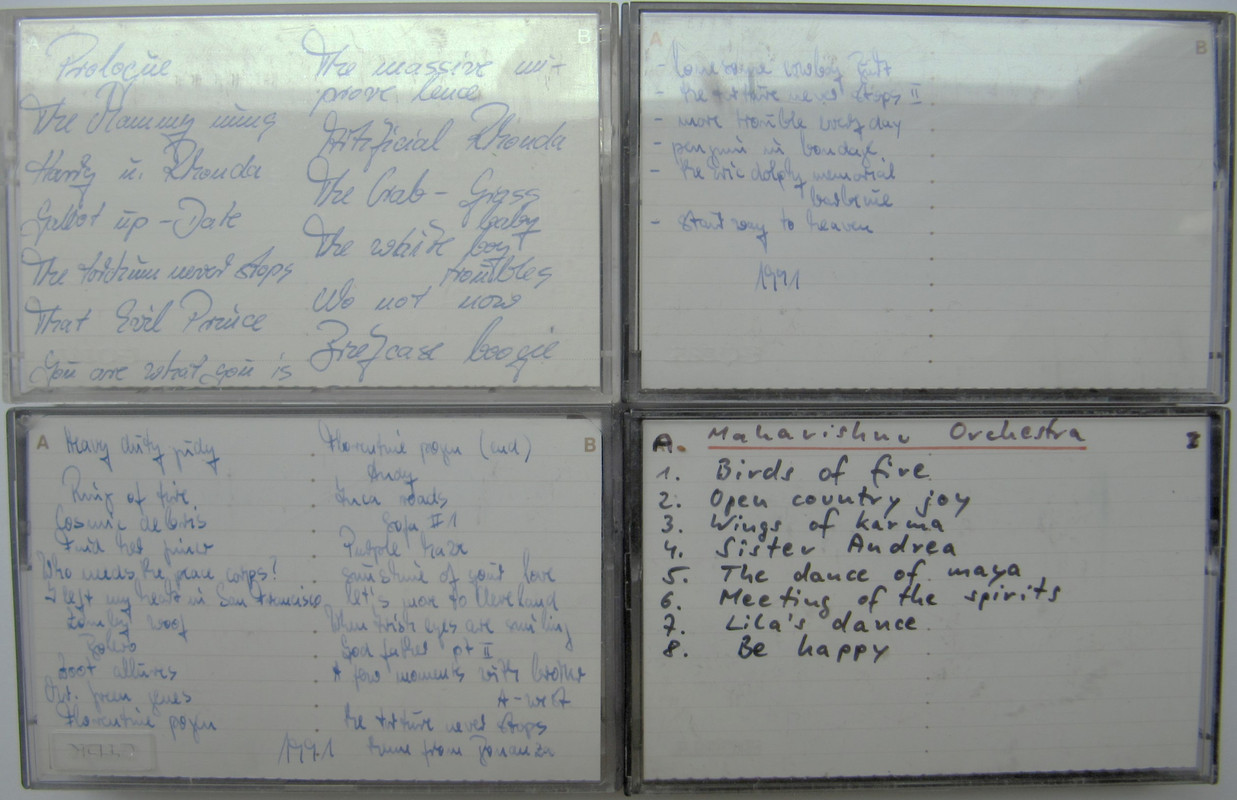 A
B
Prologue
The Mammy nuns
Harry u. Rhonda
Galliot up-Date
The torchum never stops
That Evil Prince
You are what you is
The massive im-
prove lence
Artificial Rhonda
The Crab-Grass
baby
The white boy
troubles
No not now
Briefcase boogie
A
B
- lonesome cowboy Burt
- the torture never stops II
- more trouble every day
- penguin in bondage.
- the eric dolphy memorial
barbecue
- stairway to heaven
1991
A
B
Heavy duty judy
Ring of fire
Cosmic debris
Find her finer
Who needs the peace corps?
I left my heart in San Francisco
Zomby woof
Bolero
Zoot allures
Mr. green genes
Florentine pogen
Florentine pogen (end)
Andy
Inca roads
Sofa II 1
Purple haze
Sunshine of your love
let's move to Cleveland
When Irish eyes are smiling
God father pt II
A few moments with brother
A-west
the torture never stops
theme from Bonanza
1991
A. Maharishnu Orchestra
1. Birds of fire
2. Open country joy
3. Wings of karma
4. Sister Andrea
5. The dance of maya
6. Meeting of the spirits
7. Lila's dance
8. Be happy